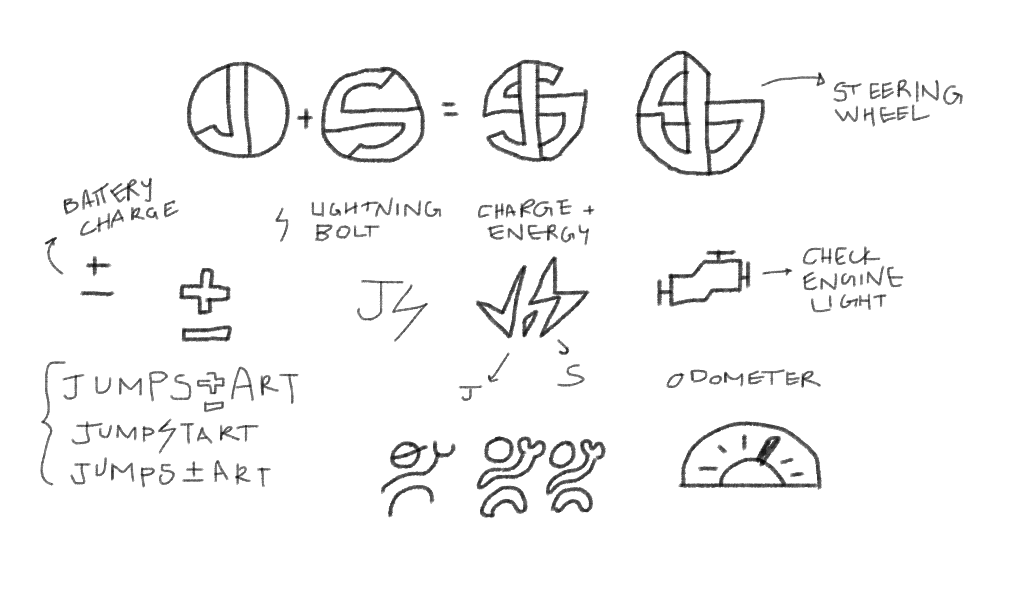 J + S = JS
STEERING
WHEEL
BATTERY
CHARGE
+
−
LIGHTNING
BOLT
CHARGE +
ENERGY
J
CHECK
ENGINE
LIGHT
J
S
JUMPS±ART
JUMPSTART
JUMPS±ART
ODOMETER